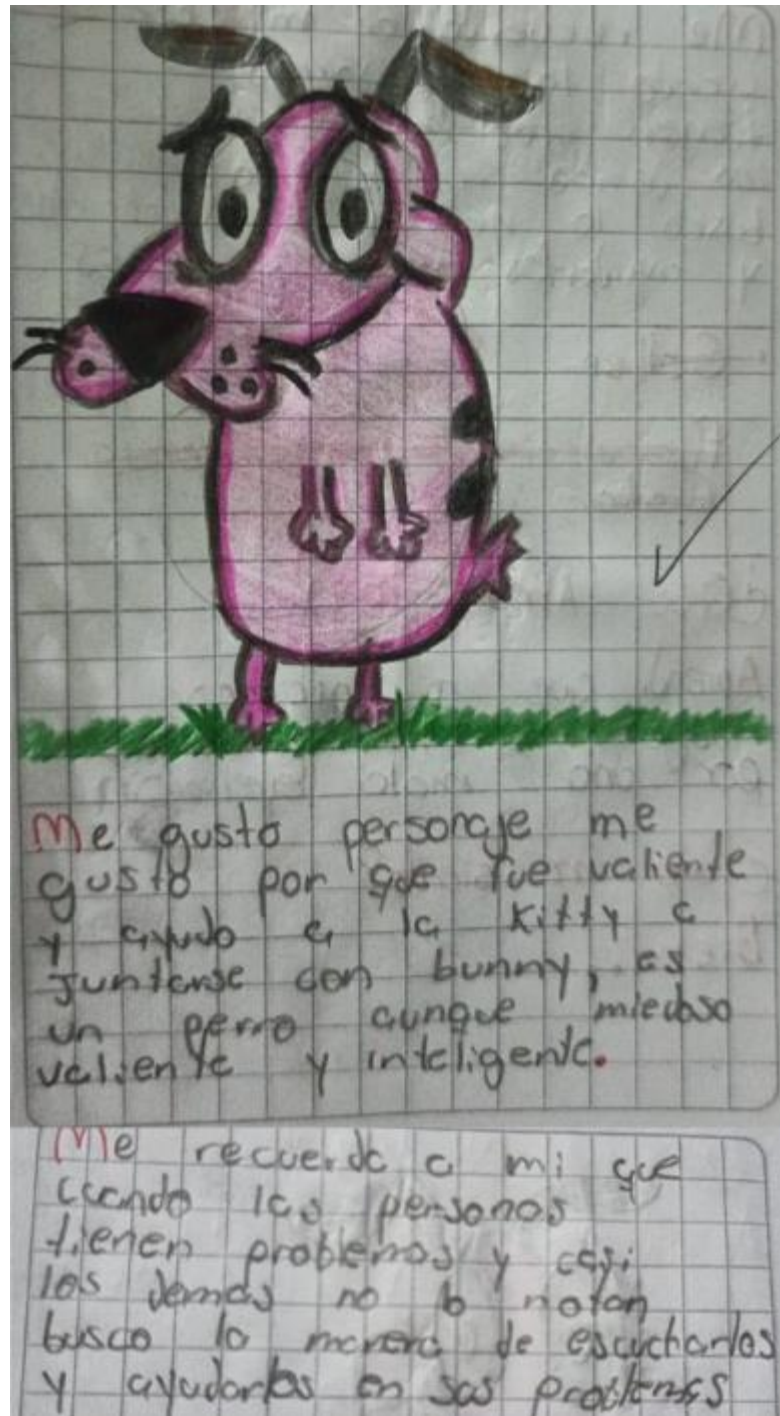 Me gusto personaje me
gustó por que fue valiente
y ayudo a la Kitty a
juntarse con bunny, es
un perro aunque miedoso
valiente y inteligente.
Me recuerda a mi que
cuando las personas
tienen problemas y casi
los demas no lo notan
busco la manera de escucharlos
y ayudarlos en sus problemas